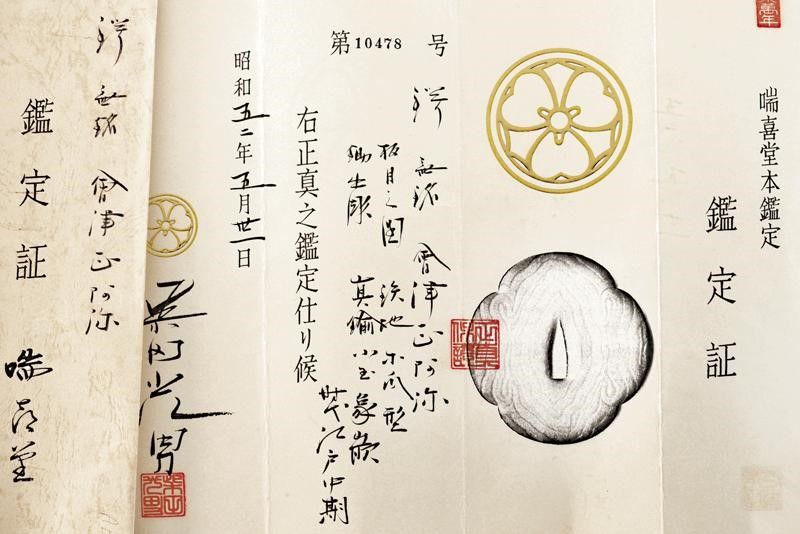 喘喜堂本鑑定
鑑定証
第10478号
鍔 無銘 會津正阿弥
板目之図 鉄地木瓜型
真鍮小玉象嵌
時代江戸中期
右正真之鑑定仕り候
昭和五二年五月卅一日
鍔 無銘 會津正阿弥
鑑定証 喘喜堂